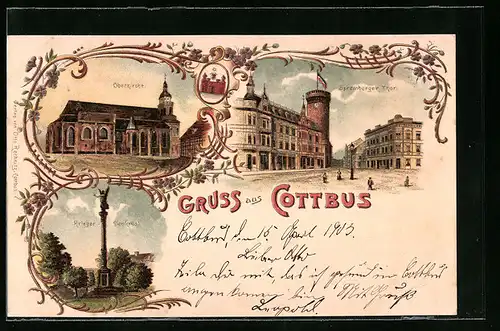 Oberkirche.
Spremberger Thor.
Krieger Denkmal.
GRUSS aus COTTBUS
Cottbus, den 15. April 1903.
Lieber Otto
Teile dir mit, daß ich gesund in Cottbus
angekommen bin. Mit Gruß
Leopold.